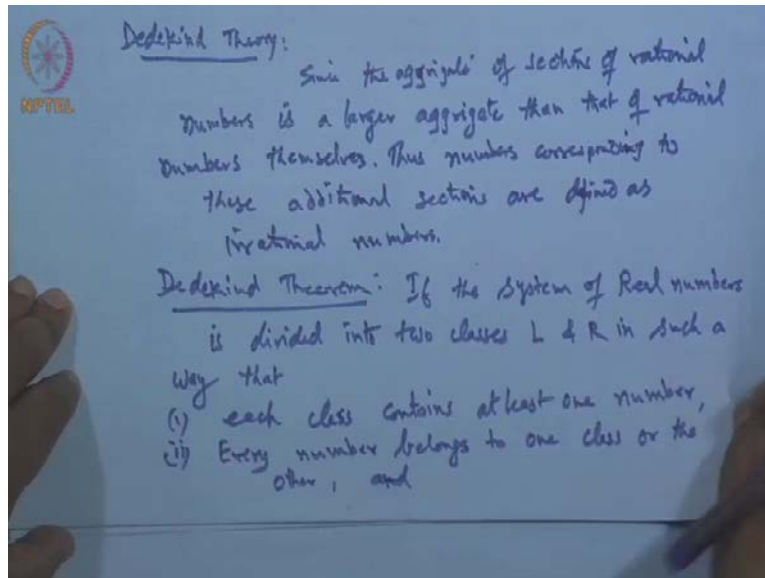 Dedekind Theory:
Since the aggrigate of sections of rational
numbers is a larger aggrigate than that of rational
numbers themselves. Thus numbers corresponding to
these additional sections are defined as
irrational numbers.
Dedekind Theorem: If the system of Real numbers
is divided into two classes L & R in such a
way that
(i) each class contains at least one number,
(ii) Every number belongs to one class or the
other, and
NPTEL